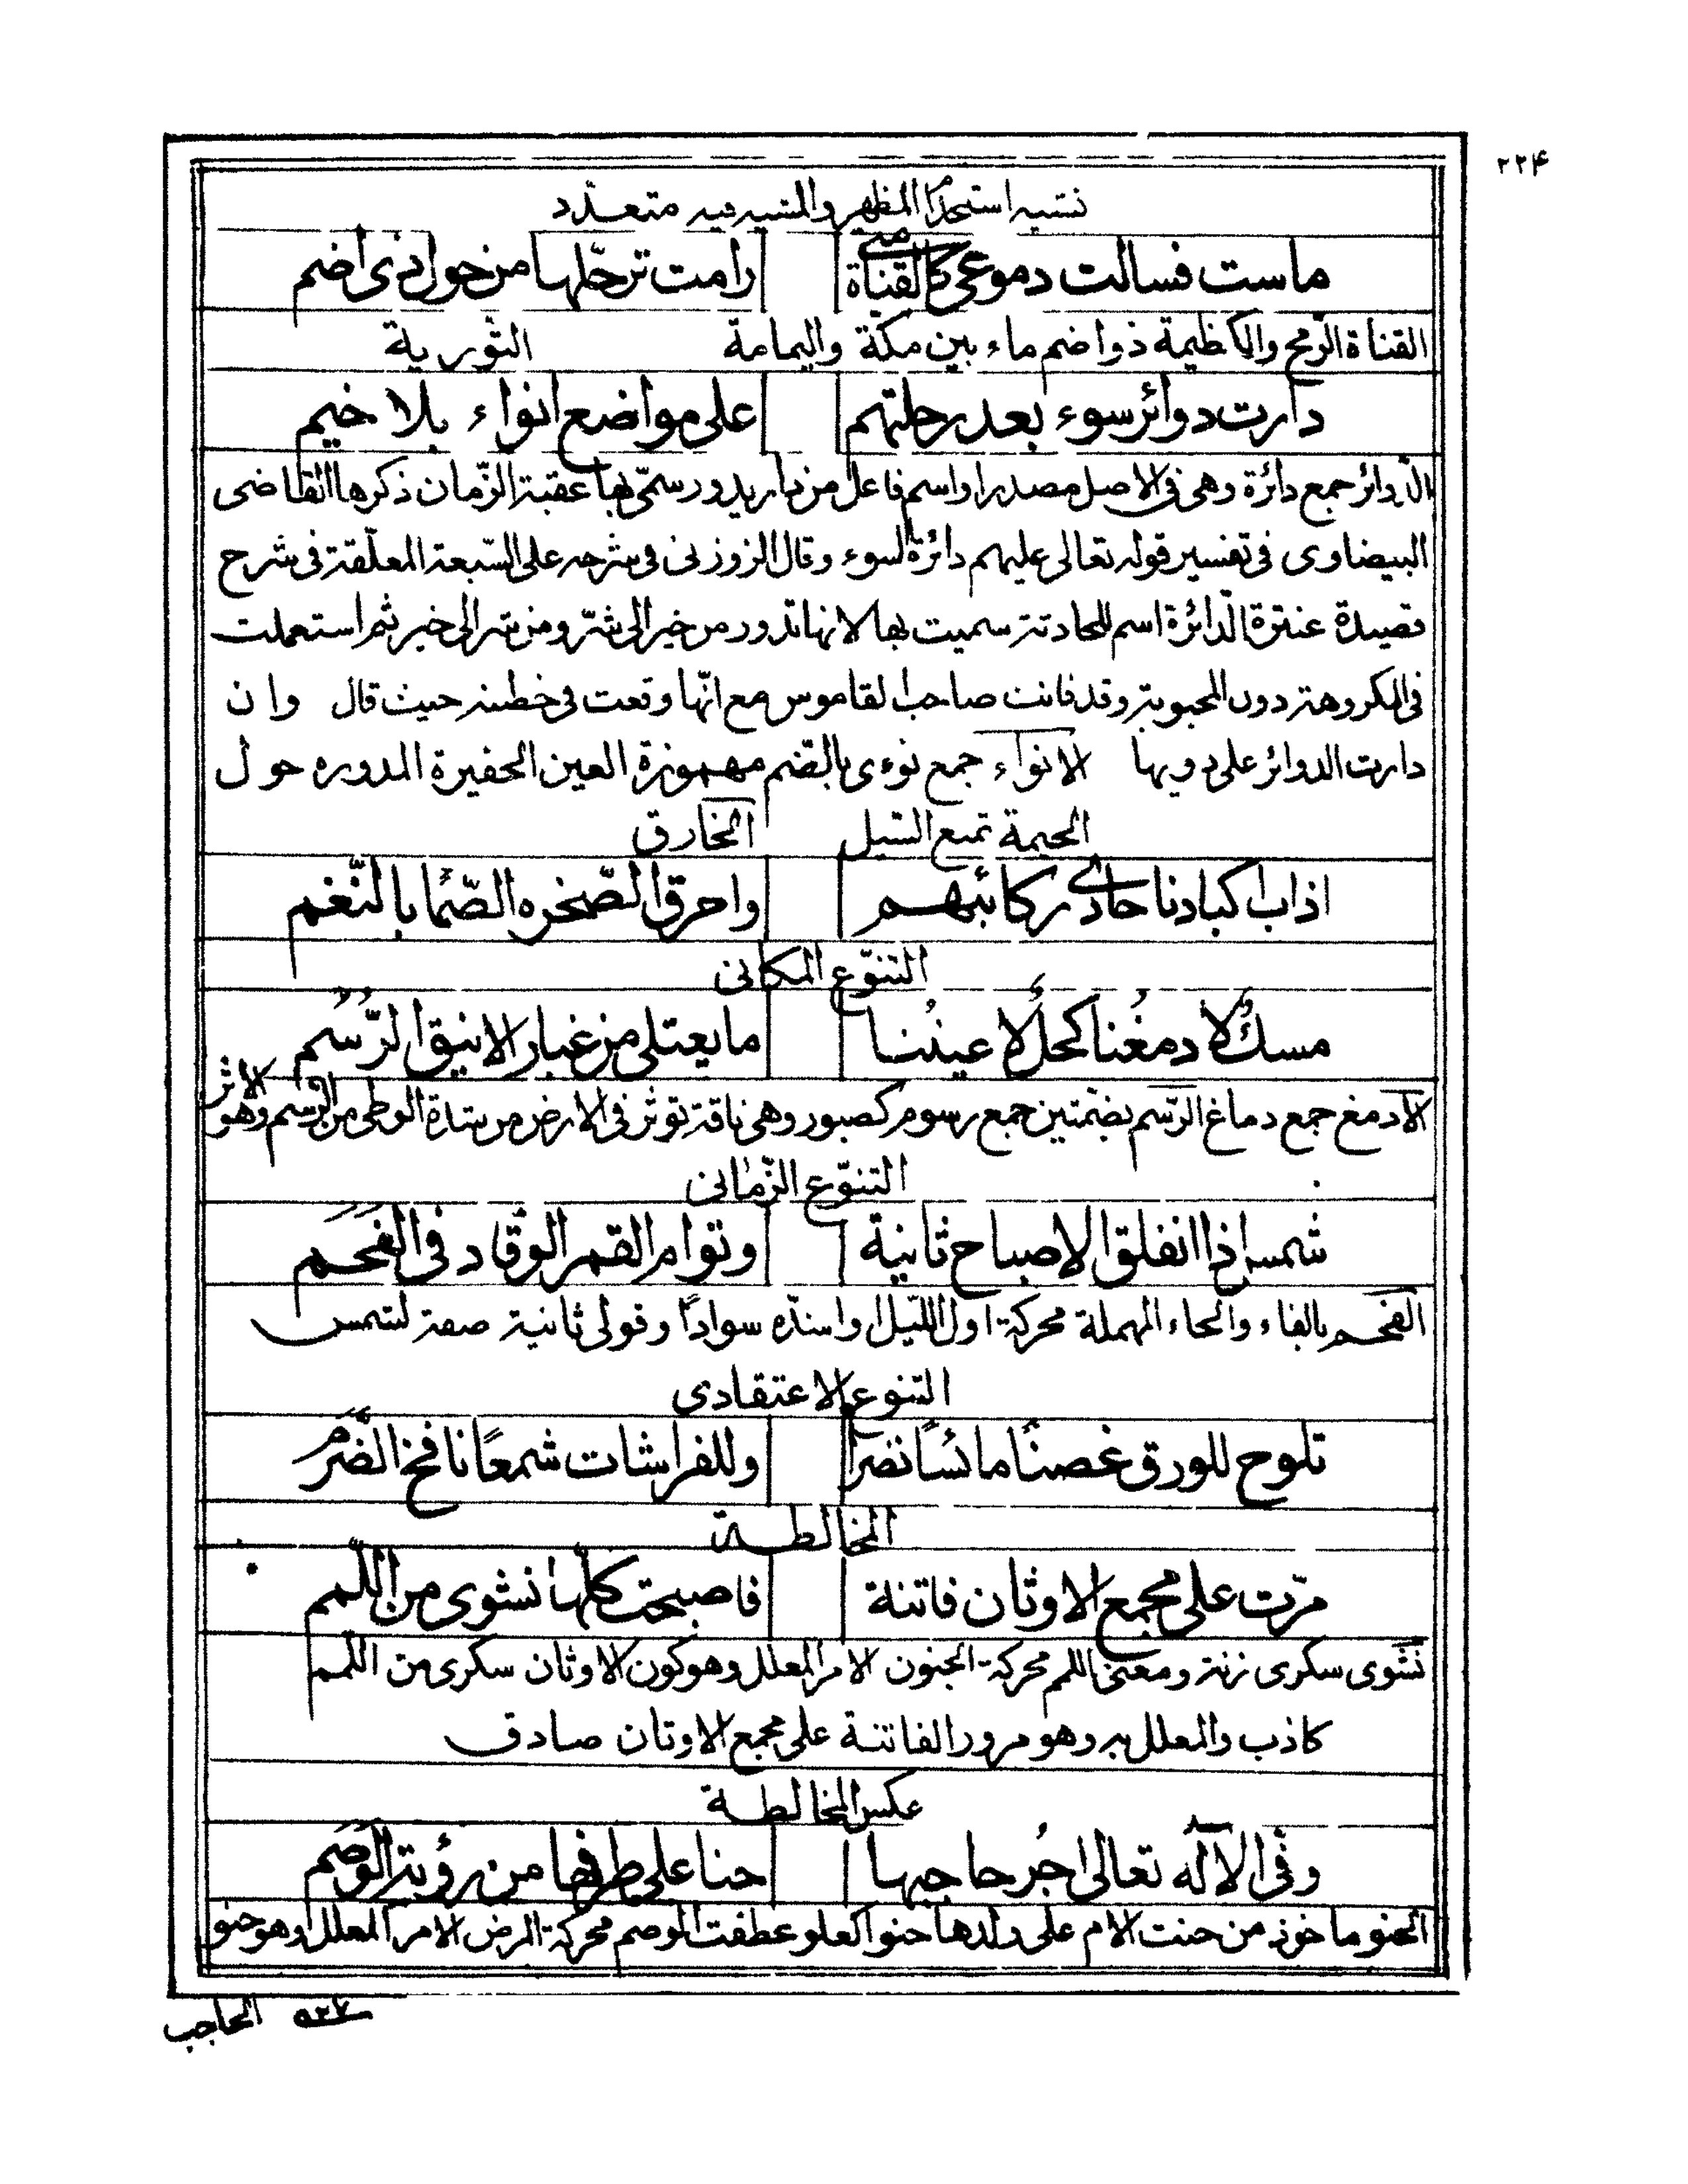 ۲۲۴
تشبيه استخدام المظهر والمشبه فيه متعدد
ماست فسالت دموعي كالقناة متى رامت ترحّلها من حول ذى اضم
القناة الرّمح والكظيمة ذو اضم ماء بين مكّة واليمامة التّورية
دارت دوائر سوء بعد رحلتهم على مواضع انواء بلا خيم
الدّوائر جمع دائرة وهى فى الاصل مصدر او اسم فاعل من دار يدور سمّى بها عقبة الزّمان ذكرها القاضى
البيضاوى فى تفسير قوله تعالى عليهم دائرة السوء وقال الزوزنى فى شرحه على السّبعة المعلّقة فى شرح
قصيدة عنترة الدّائرة اسم للحادثة سميت بها لانها تدور من خير الى شرّ ومن شر الى خير ثم استعملت
فى المكروهة دون المحبوبة وقد فاتت صاحب القاموس مع انّها وقعت فى خطبته حيث قال وان
دارت الدوائر على ذويها الانواء جمع نوءى بالضّم مهموزة العين الحفيرة المدوره حول
الخيمة تمنع السّيل الخارق
اذاب اكبادنا حادى ركائبهم واحرق الصّخره الصّمّا بالنّغم
التنوّع المكانى
مسكٌ لادمغنا كحلٌ لاعيننا ما يعتلى من غبار الانيق الرُّسُم
الادمغ جمع دماغ الرّسم بضمّتين جمع رسوم كصبور وهى ناقة تؤثر فى الارض من شدة الوطى من الرّسم وهو الاثر
التنوّع الزّمانى
شمس اذا انفلق الاصباح ثانية وتوام القمر الوقّاد فى الفَحَم
الفحم بالفاء والحاء المهملة محركة اول اللّيل او اشدّه سوادًا وقولى ثانية صفة لشمس
التنوع الاعتقادى
تلوح للورق غصنًا مائسًا نضرًا وللفراشات شمعًا نافخ الضَّرَم
المخالطة
مرّت على مجمع الاوثان فاتنة فاصبحت كلّها نشوى من اللّمم
نشوى سكرى زنة ومعنى اللمم محركة الجنون الامر المعلل وهو كون الاوثان سكرى من اللمم
كاذب والمعلل به وهو مرور الفاتنة على مجمع الاوثان صادق
عكس المخالطة
وفّى الاله تعالى اجُر حاجبها حنا على طرفها من رؤية الوَصَم
الحنو ماخوذ من حنت الام على ولدها حنوا كعلو عطفت الوصم محركة المرض الامر المعلل وهو حنو
الحاجب